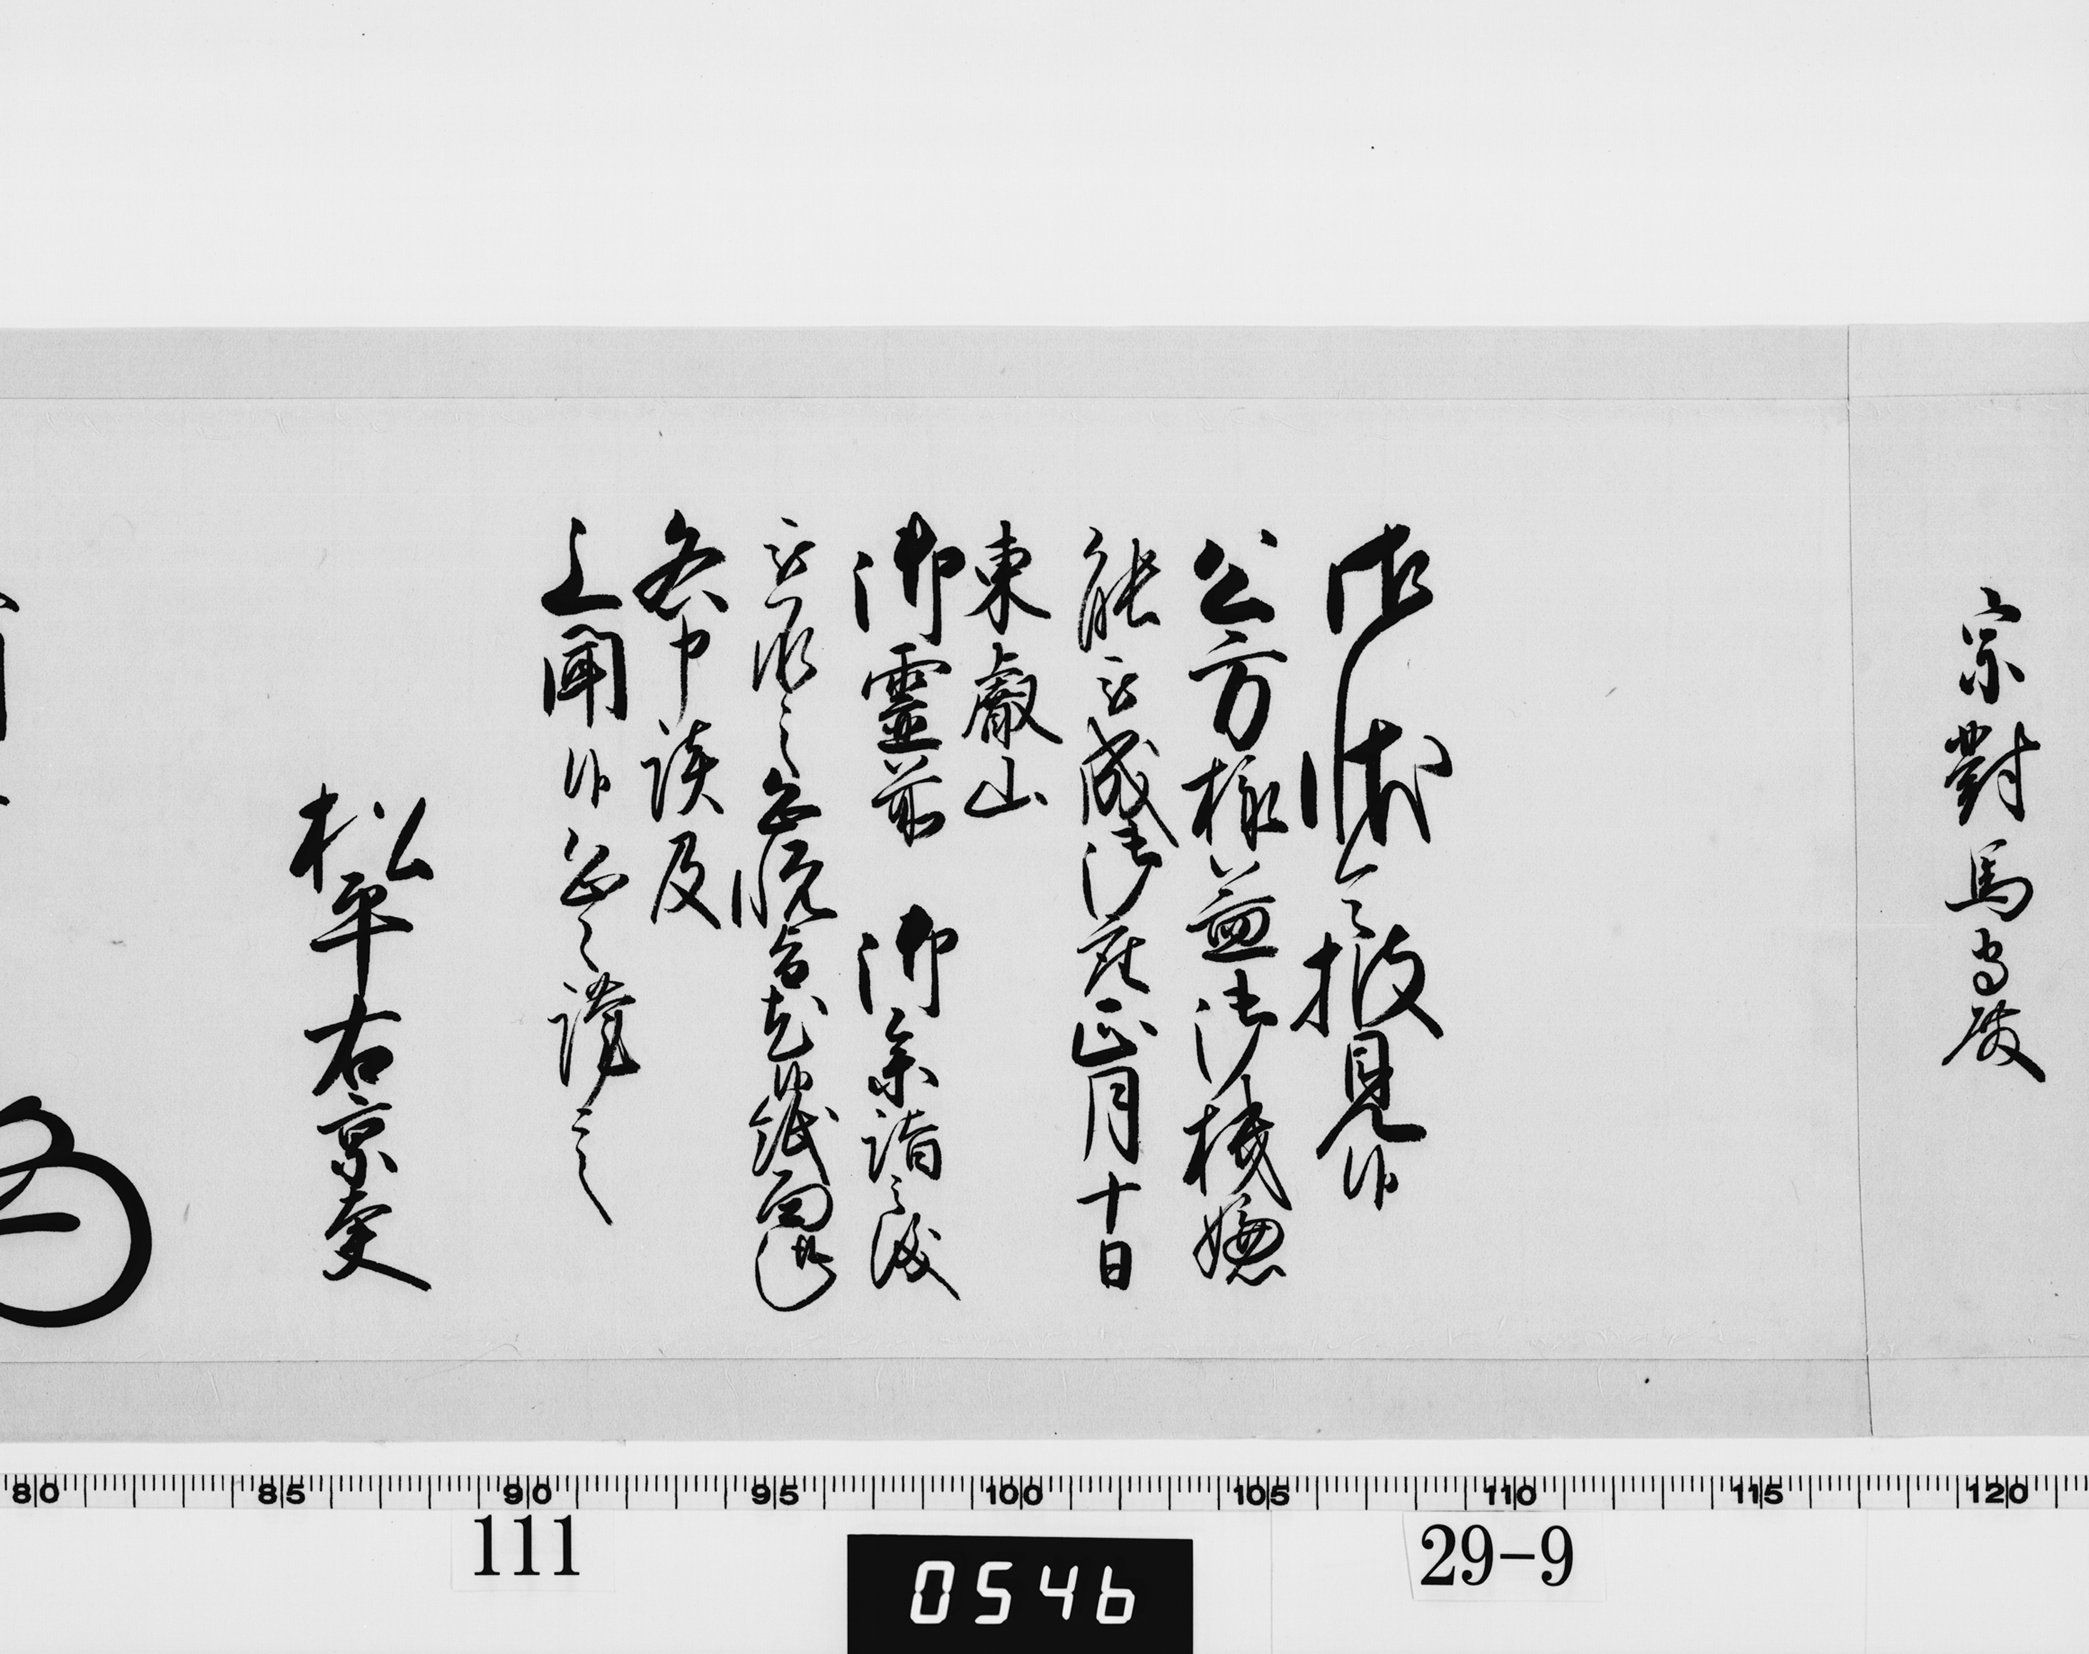 宗對馬守殿
御状令披見候
公方様益御機嫌
能被成御座正月十日
東叡山
御靈前 御参詣之段
被承之恐悦旨尤候紙面之趣
各申談及
上聞候恐々謹言
松平右京大夫
80 85 90 95 100 105 110 115 120
111
0546
29-9